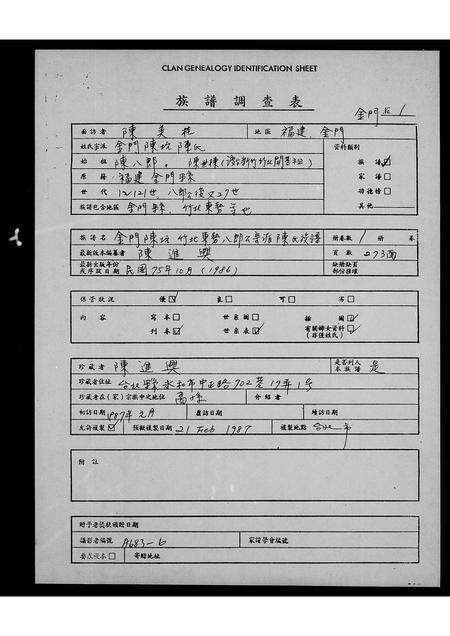 CLAN GENEALOGY IDENTIFICATION SHEET
族譜調查表
金門 1
查訪者 陳美桂 地區 福建 金門
姓氏宗派 金門陳坑陳氏 資料類別
始祖 陳八郎 族譜 ☑
原籍 福建金門縣 家譜 □
世代 功德特 □
族譜包含地區 金門縣，竹北東勢等地 其他
族譜名 金門陳坑竹北東勢八郎公 派陳氏族譜 冊卷數 1 冊
最新版本編纂者 陳進興 頁數 273面
最新出版年份或序跋日期 民國75年10月(1986) 缺頁部份接環
保管狀況 優 ☑ 良 □ 可 □ 劣 □
內容 寫本 □ 世系圖 □ 插圖 □
刊本 ☑ 世系表 ☑ 有關婦女資料(非僅姓氏) ☑
珍藏者 陳進興 是否列入本族譜 是
珍藏者住址 台北縣永和市中正路702巷17弄1號
珍藏者在(家)宗族中之地位 裔孫 介紹者
初訪日期 1987年元月 複訪日期 續訪日期
允許複製 ☑ 複製日期 21 Feb 1987 複製地點 台北市
附註
贈予者獎狀頒贈日期
攝影者編號 A683-6 家譜學會編號
要求複本 □ 寄贈地址